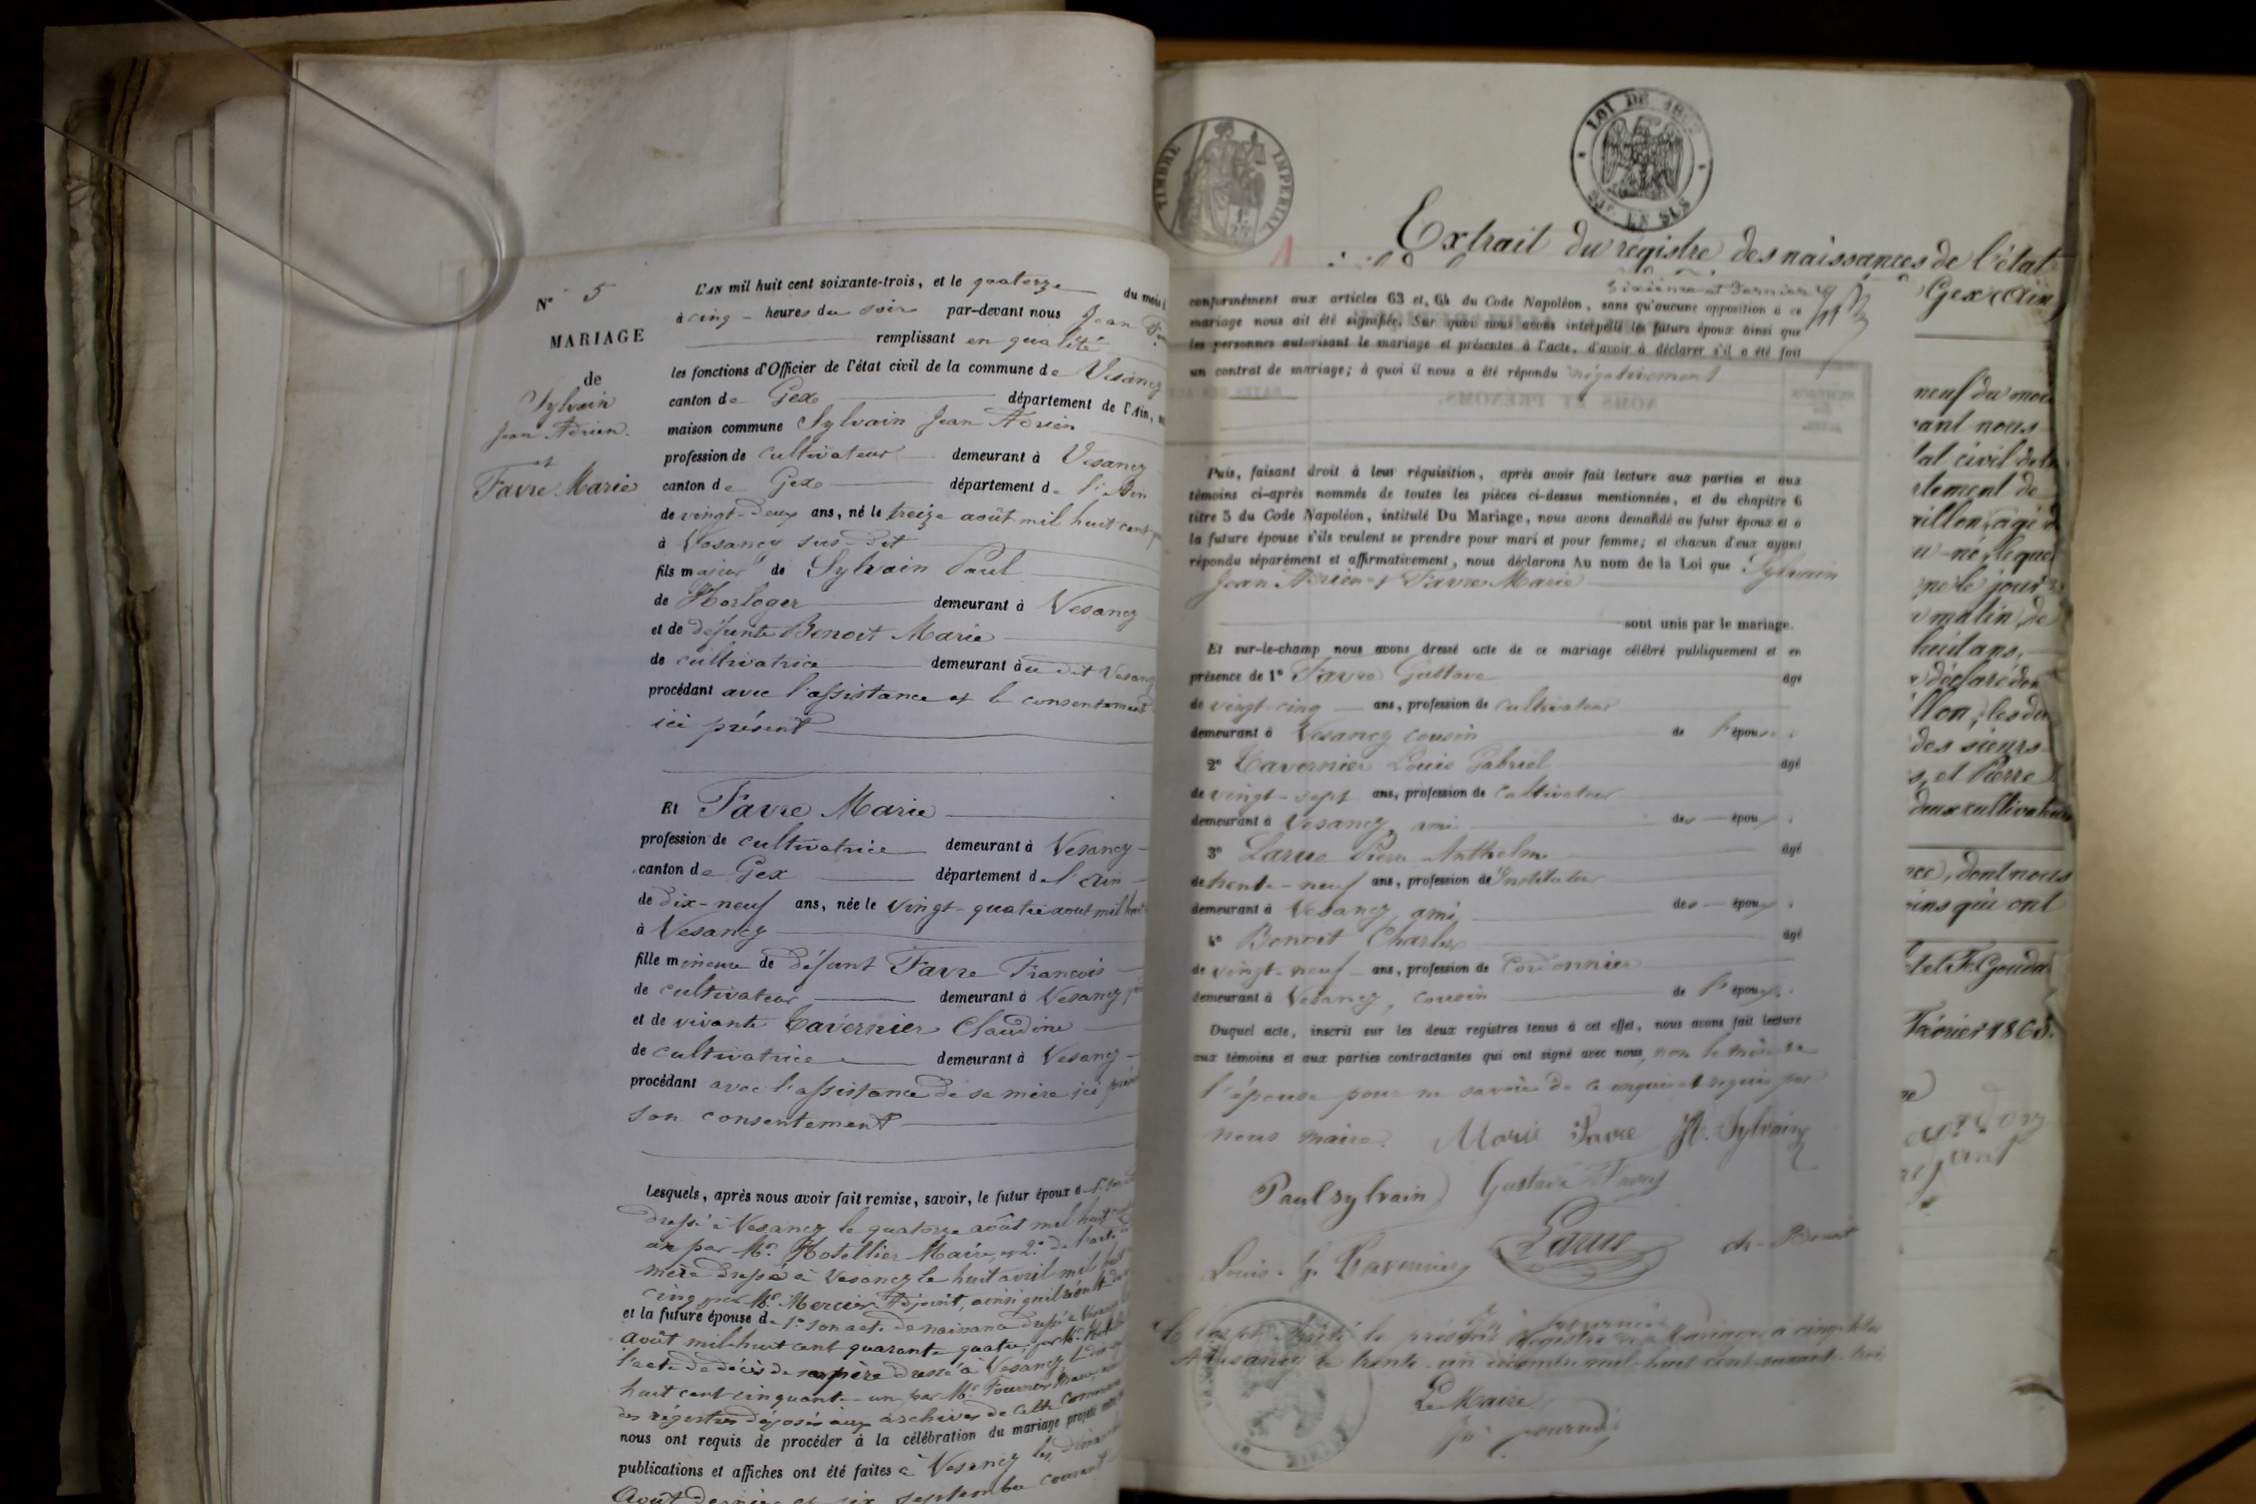 N° 5
MARIAGE
de
Sylvain
Jean Adrien
et
Favre Marie
L'AN mil huit cent soixante-trois, et le quatorze du mois
à cinq heures du soir par-devant nous Jean
remplissant en qualité
les fonctions d'Officier de l'état civil de la commune de Vesancy
canton de Gex département de l'Ain,
maison commune Sylvain Jean Adrien
profession de cultivateur demeurant à Vesancy
canton de Gex département de l'Ain
de vingt-deux ans, né le treize août mil huit cent
à Vesancy sus-dit
fils majeur de Sylvain Paul
de Horloger demeurant à Vesancy
et de défunte Benoit Marie
de cultivatrice demeurant au dit Vesancy
procédant avec l'assistance et le consentement
ici présent
Et Favre Marie
profession de cultivatrice demeurant à Vesancy
canton de Gex département de l'Ain
de dix-neuf ans, née le vingt-quatre aout mil huit
à Vesancy
fille mineure de défunt Favre François
de cultivateur demeurant à Vesancy
et de vivante Tavernier Claudine
de cultivatrice demeurant à Vesancy
procédant avec l'assistance de sa mère ici
son consentement
Lesquels, après nous avoir fait remise, savoir, le futur époux
dressé à Vesancy le quatorze août mil huit
un par Mr. Hotellier Maire, et 2° de l'acte
mère dressé à Vesancy le huit avril mil
cinq par Mr. Mercier Adjoint, ainsi qu'il résulte
et la future épouse de 1° son acte de naissance dressé à Vesancy
août mil huit cent quarante quatre, par Mr.
l'acte de décès de son père dressé à Vesancy le
huit cent cinquante-un par Mr. Fournier Maire,
des régistres déposés aux archives de cette Commune
nous ont requis de procéder à la célébration du mariage projeté
publications et affiches ont été faites à Vesancy les
Août dernier et six septembre courant
TIMBRE IMPERIAL
LOI DE 1862
EN SUS
Extrait du régistre des naissances de l'état
Gex (Ain)
sixième et dernier
conformément aux articles 63 et, 64 du Code Napoléon, sans qu'aucune opposition à ce
mariage nous ait été signifiée. Sur quoi nous avons interpellé les futurs époux ainsi que
les personnes autorisant le mariage et présentes à l'acte, d'avoir à déclarer s'il a été fait
un contrat de mariage; à quoi il nous a été répondu négativement
Puis, faisant droit à leur réquisition, après avoir fait lecture aux parties et aux
témoins ci-après nommés de toutes les pièces ci-dessus mentionnées, et du chapitre 6
titre 5 du Code Napoléon, intitulé Du Mariage, nous avons demandé au futur époux et à
la future épouse s'ils veulent se prendre pour mari et pour femme; et chacun d'eux ayant
répondu séparément et affirmativement, nous déclarons Au nom de la Loi que Sylvain
Jean Adrien et Favre Marie
sont unis par le mariage.
Et sur-le-champ nous avons dressé acte de ce mariage célébré publiquement et en
présence de 1° Favre Gustave âgé
de vingt-cinq ans, profession de cultivateur
demeurant à Vesancy cousin de l'épouse
2° Tavernier Louis Gabriel âgé
de vingt-sept ans, profession de cultivateur
demeurant à Vesancy, ami des époux
3° Larue Pierre Anthelme âgé
de trente-neuf ans, profession de Instituteur
demeurant à Vesancy, ami, des époux
4° Benoit Charles âgé
de vingt-neuf ans, profession de Cordonnier
demeurant à Vesancy, cousin de l'époux
Duquel acte, inscrit sur les deux registres tenus à cet effet, nous avons fait lecture
aux témoins et aux parties contractantes qui ont signé avec nous, non la mère de
l'épouse pour ne savoir de ce enquise et requise par
nous maire. Marie Favre J. Sylvain
Paul sylvain Gustave Favre
Larue
Louis. G. Tavernier ch. Benoit
le présent registre des Mariages à cinq
A Vesancy le trente-un décembre mil huit cent soixante-trois
Le Maire
neuf du mois
vant nous
tat civil de
rtement de
rillon, agé
ne le jour
matin, de
huit ans,
déclaré
llon; les
des sieurs
s, et Pierre
deux cultivateurs
dont nous
oins qui ont
Février 1863.